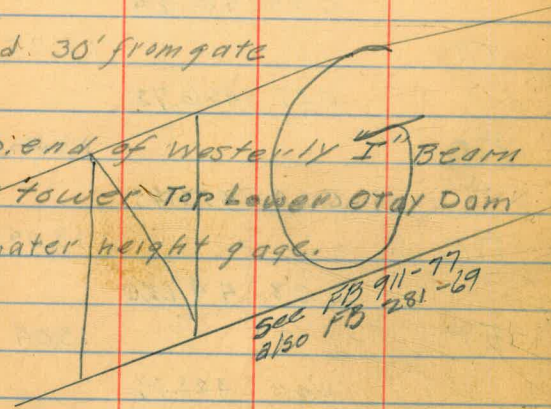 d. 30' from gate
o. end of Westerly "I" Beam
tower Top Lower Otay Dam
ater height gage.
NG
See FB 911-77
also FB 281-69